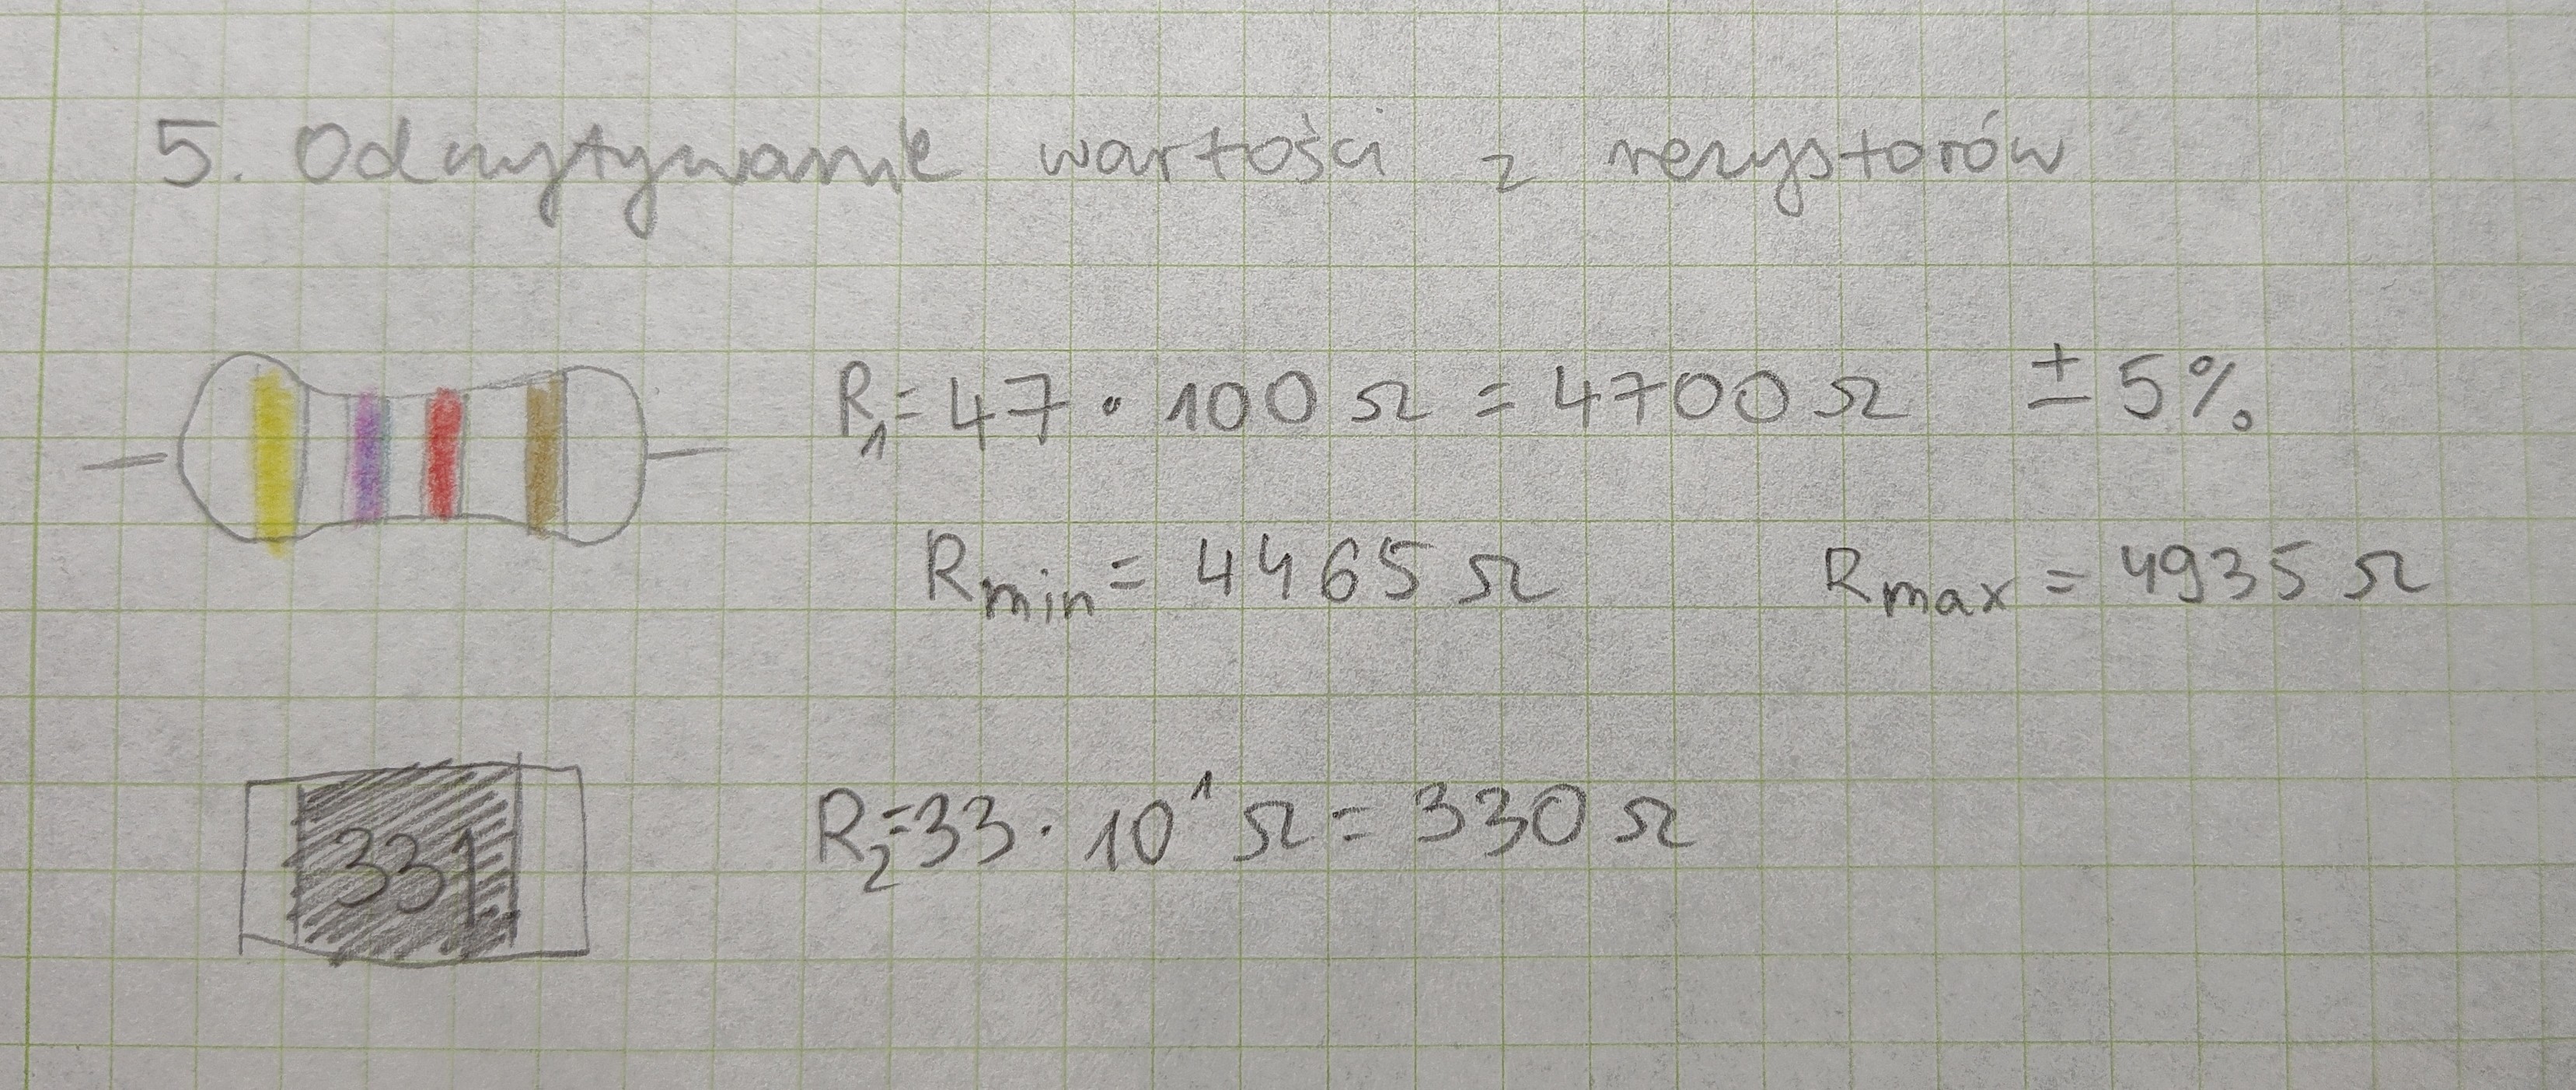 5. Odczytywanie wartości z rezystorów
R₁= 47 · 100 Ω = 4700 Ω ± 5%
Rmin = 4465 Ω Rmax = 4935 Ω
331
R₂=33 · 10¹ Ω = 330 Ω